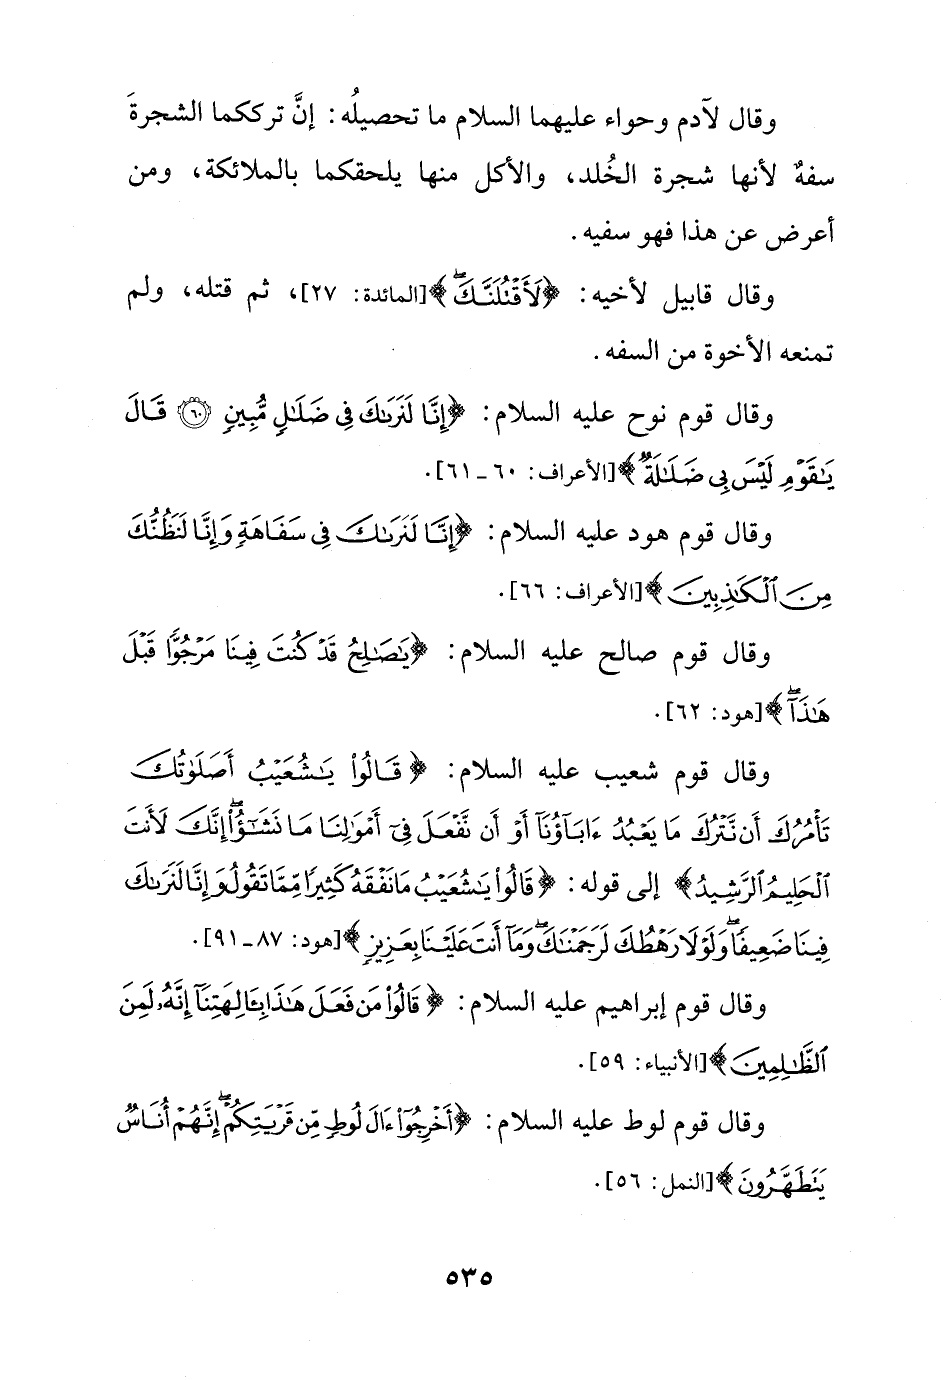 وقال لآدم وحواء عليهما السلام ما تحصيلُه: إنَّ ترككما الشجرةَ
سفهٌ لأنها شجرة الخُلد، والأكل منها يلحقكما بالملائكة، ومن
أعرض عن هذا فهو سفيه.
وقال قابيل لأخيه: ﴿لَأَقْتُلَنَّكَ ۖ﴾ [المائدة: ٢٧]، ثم قتله، ولم
تمنعه الأخوة من السفه.
وقال قوم نوح عليه السلام: ﴿إِنَّا لَنَرَىٰكَ فِى ضَلَـٰلٍ مُّبِينٍ ۝٦٠ قَالَ
يَـٰقَوْمِ لَيْسَ بِى ضَلَـٰلَةٌ﴾ [الأعراف: ٦٠ـ٦١].
وقال قوم هود عليه السلام: ﴿إِنَّا لَنَرَىٰكَ فِى سَفَاهَةٍ وَإِنَّا لَنَظُنُّكَ
مِنَ ٱلْكَـٰذِبِينَ﴾ [الأعراف: ٦٦].
وقال قوم صالح عليه السلام: ﴿يَـٰصَـٰلِحُ قَدْ كُنتَ فِينَا مَرْجُوًّا قَبْلَ
هَـٰذَآ ۖ﴾ [هود: ٦٢].
وقال قوم شعيب عليه السلام: ﴿قَالُوا۟ يَـٰشُعَيْبُ أَصَلَوٰتُكَ
تَأْمُرُكَ أَن نَّتْرُكَ مَا يَعْبُدُ ءَابَآؤُنَآ أَوْ أَن نَّفْعَلَ فِىٓ أَمْوَٰلِنَا مَا نَشَـٰٓؤُا۟ ۖ إِنَّكَ لَأَنتَ
ٱلْحَلِيمُ ٱلرَّشِيدُ﴾ إلى قوله: ﴿قَالُوا۟ يَـٰشُعَيْبُ مَا نَفْقَهُ كَثِيرًا مِّمَّا تَقُولُ وَإِنَّا لَنَرَىٰكَ
فِينَا ضَعِيفًا ۖ وَلَوْلَا رَهْطُكَ لَرَجَمْنَـٰكَ ۖ وَمَآ أَنتَ عَلَيْنَا بِعَزِيزٍ﴾ [هود: ٨٧ـ٩١].
وقال قوم إبراهيم عليه السلام: ﴿قَالُوا۟ مَن فَعَلَ هَـٰذَا بِـَٔالِهَتِنَآ إِنَّهُۥ لَمِنَ
ٱلظَّـٰلِمِينَ﴾ [الأنبياء: ٥٩].
وقال قوم لوط عليه السلام: ﴿أَخْرِجُوٓا۟ ءَالَ لُوطٍ مِّن قَرْيَتِكُمْ ۖ إِنَّهُمْ أُنَاسٌ
يَتَطَهَّرُونَ﴾ [النمل: ٥٦].
٥٣٥